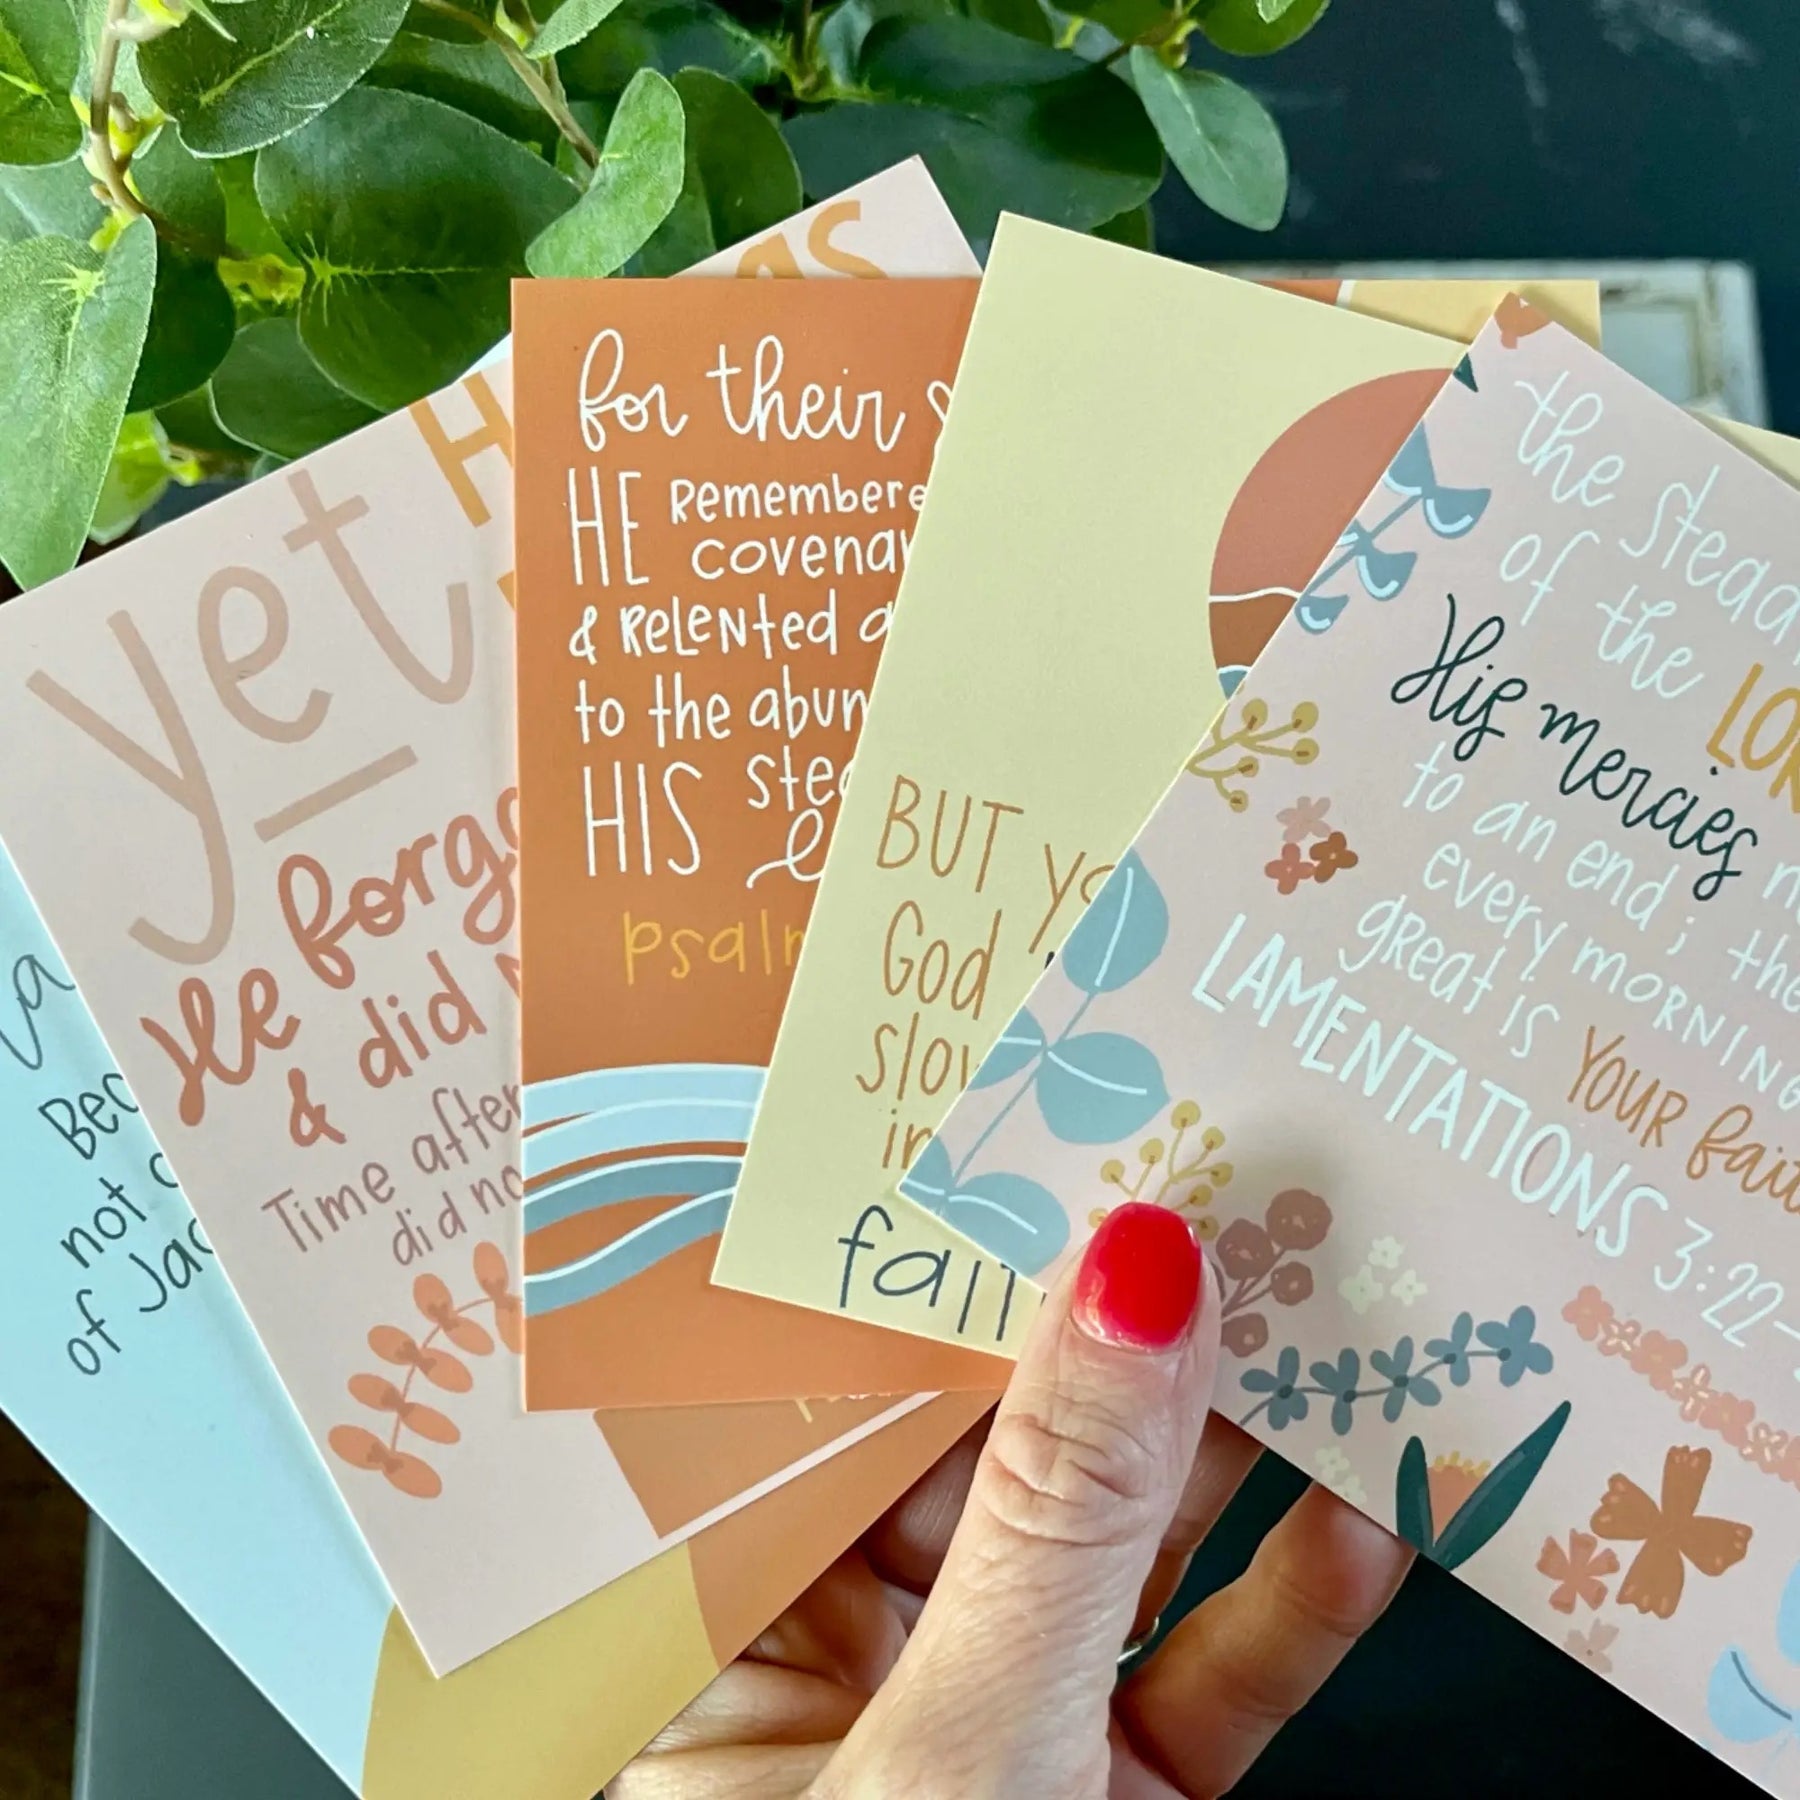 Bec
not c
of Jac
yet
He forgo
& did
Time after
did no
as
for their
HE Remembere
covenan
& RELENted a
to the abun
HIS stea
psalm
BUT
God
slow
in
fait
the stead
of the LOR
His mercies
to an end; the
every mORNING
gReat is YOUR fait
LAMENTATIONS 3:22-